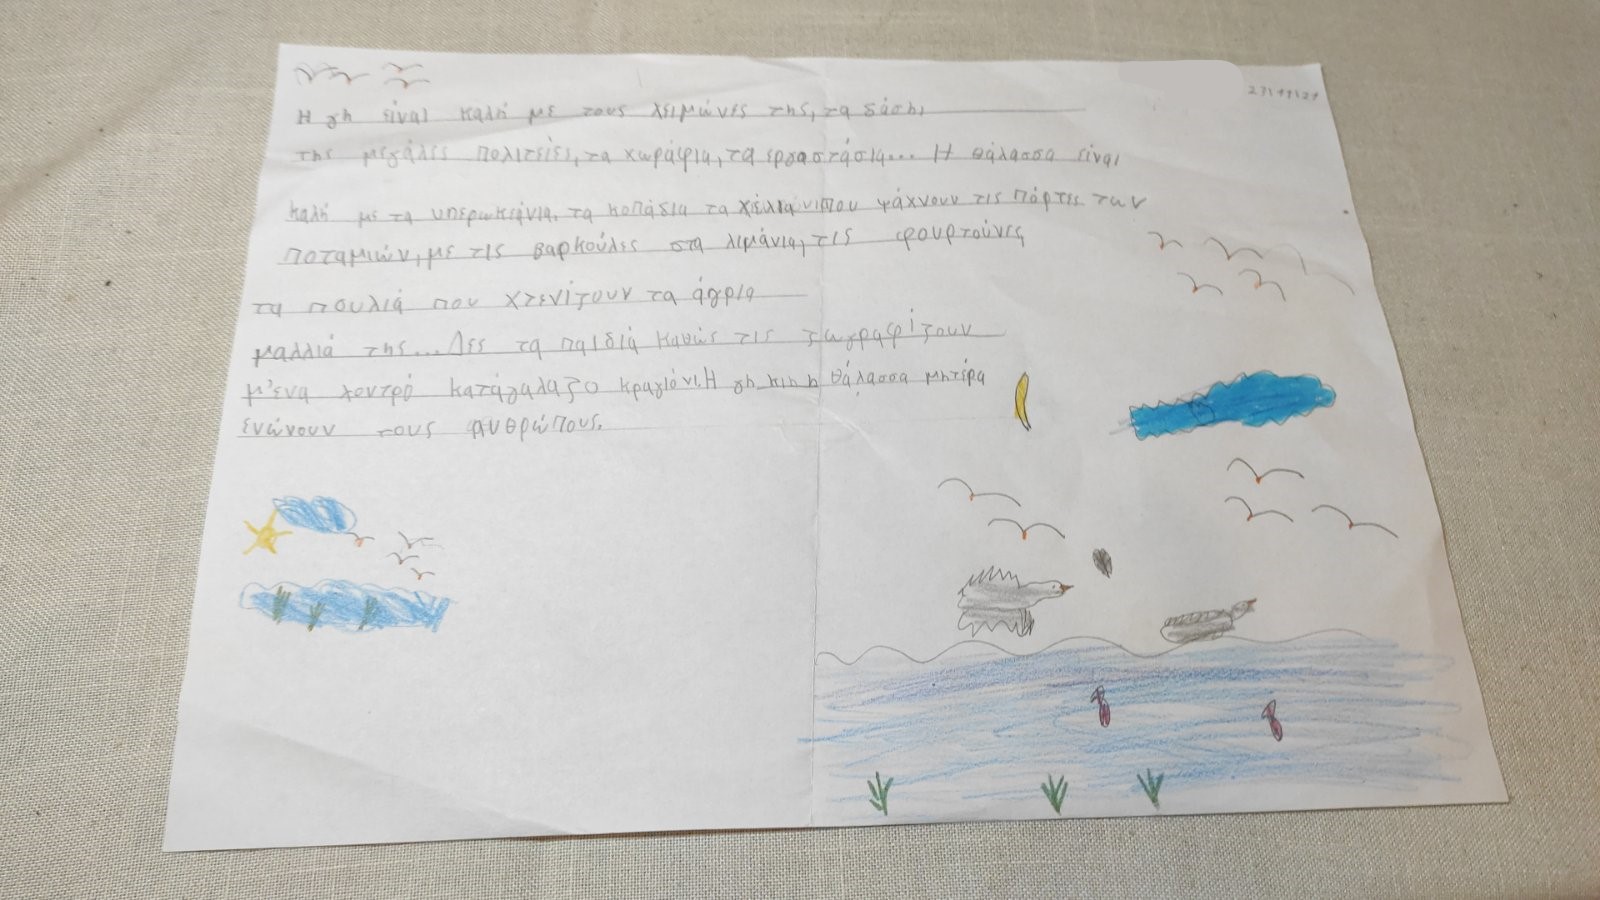 23/11/21
Η γη είναι καλή με τους λειμώνες της, τα δάση,
της μεγάλες πολιτείες, τα χωράφια, τα εργαστάσια... Η θάλασσα είναι
καλή με τα υπερωκιάνια, τα κοπάδια τα χέλια που ψάχνουν τις πόρτες των
ποταμιών, με τις βαρκούλες στα λιμάνια, τις φουρτούνες
τα πουλιά που χτενίζουν τα άγρια
μαλλιά της... Δες τα παιδιά καθώς τις ζωγραφίζουν
μ'ενα χοντρό κατάγαλαζο κραγιόνι. Η γη κι η θάλασσα μητέρα
ενώνουν τους ανθρώπους.